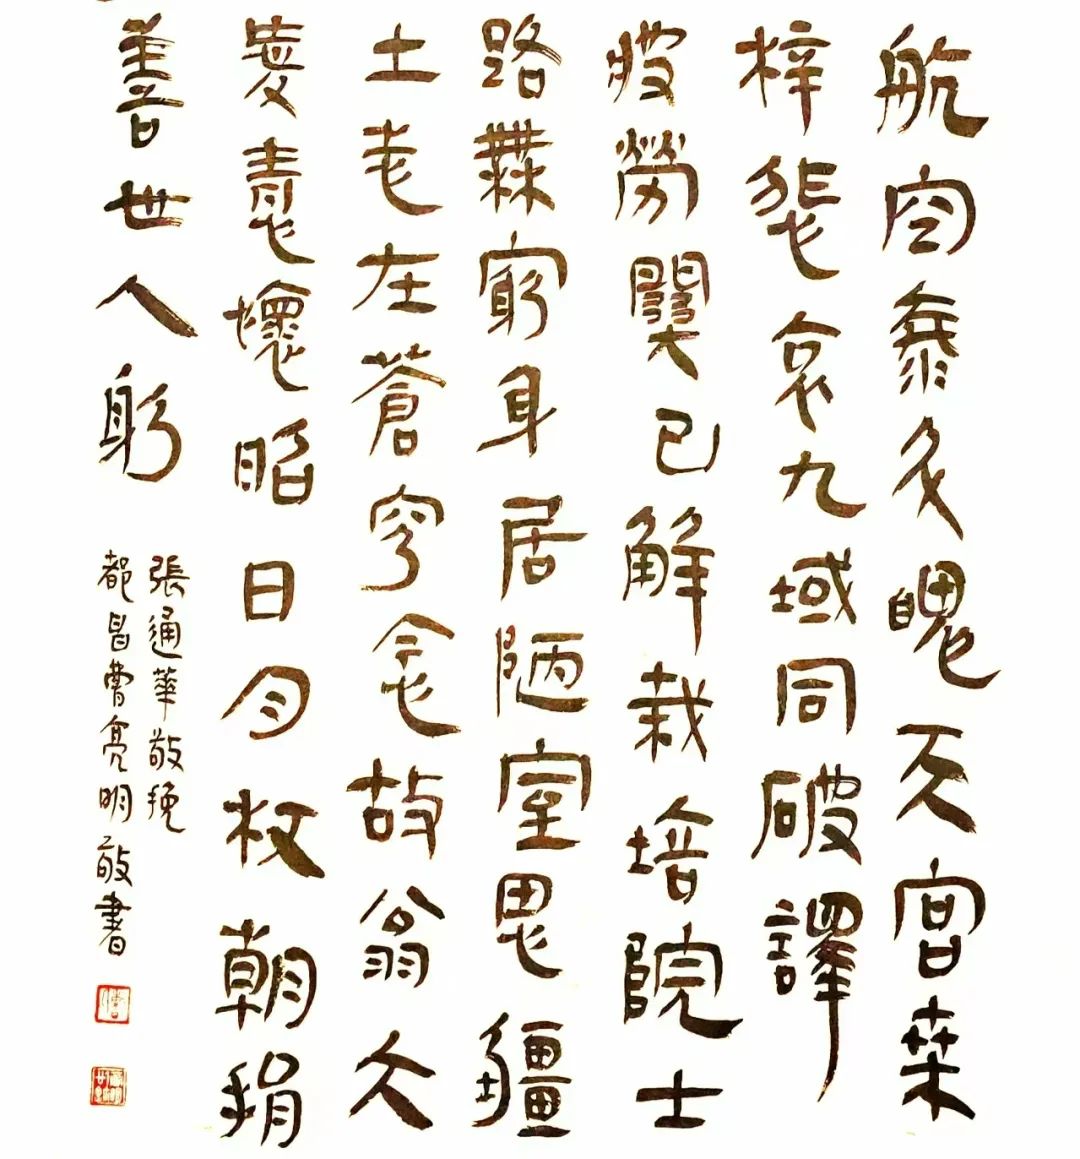 航空泰斗魄天宮桑
梓悲哀九域同破譯
疲勞關已解栽培院士
路無窮身居陋室思疆
土志在蒼穹念故翁大
愛情懷昭日月杖朝捐
善世人躬
張通華敬挽
都昌曹亮明敬書